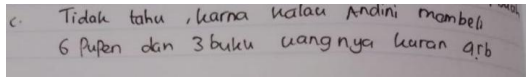 c. Tidak tahu, karna kalau Andini mambeli
6 Pupen dan 3 buku uangnya kuran arb